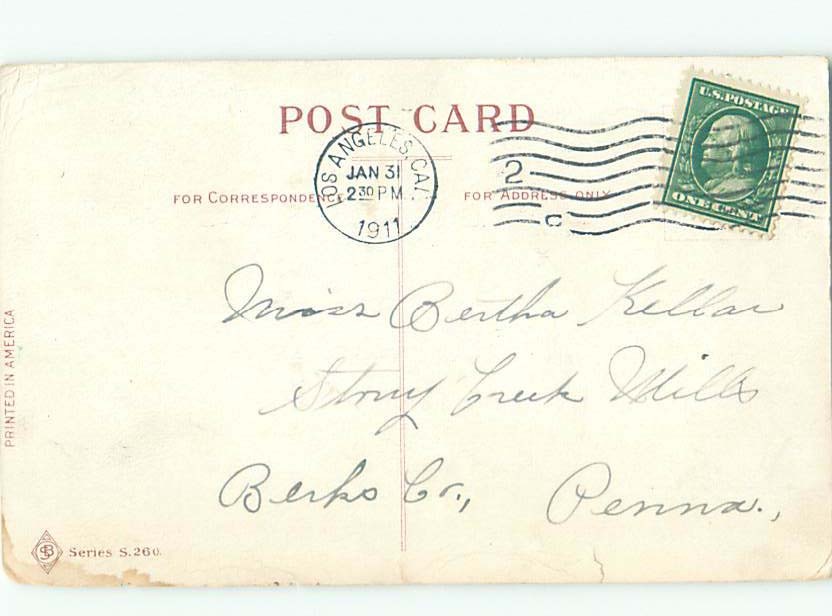 POST CARD
U.S. POSTAGE
ONE CENT
LOS ANGELES, CAL.
JAN 31
2 30 PM
1911
2
C
FOR CORRESPONDENCE
FOR ADDRESS ONLY
Miss Bertha Kellar
Stony Creek Mills
Berks Co., Penna.,
PRINTED IN AMERICA
SB Series S.260.